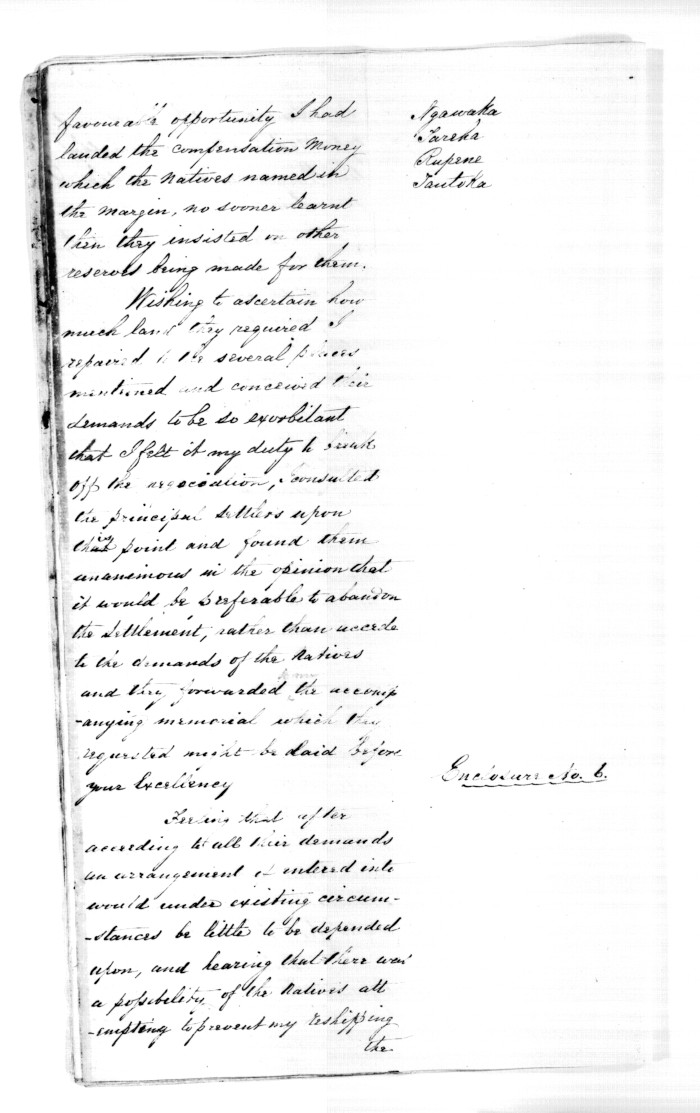 favourable opportunity I had
landed the compensation Money
which the Natives named in
the Margin, no sooner learnt
then they insisted on other
reserves being made for them.
Wishing to ascertain how
much land they required I
repaired to the several places
mentioned and conceived their
demands to be so exorbitant
that I felt it my duty to break
off the negociation, I consulted
the principal Settlers upon
this point and found them
unanimous in the opinion that
it would be preferable to abandon
the Settlement, rather than accede
to the demands of the Natives
and they forwarded to me the accomp
-anying memorial which they
requested might be laid before
your Excellency
Feeling that after
acceeding to all their demands
an arrangement if entered into
would under existing circum-
-stances be little to be depended
upon, and hearing that there was
a possibility of the Natives att
-empting to prevent my reshipping
the
Ngawaka
Tareha
Rupene
Tautoka
Enclosure No. 6.